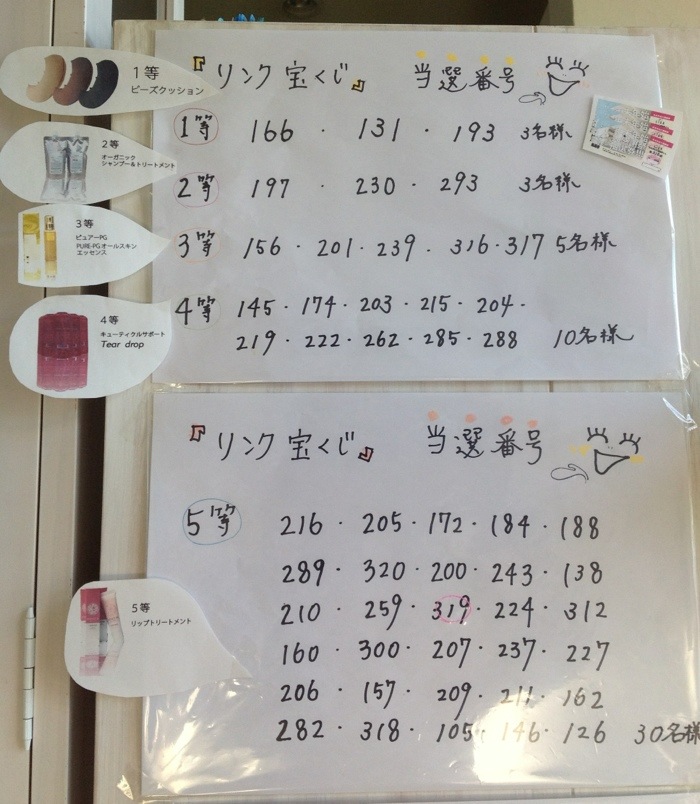 『リンク宝くじ』 当選番号
1等 166 ・ 131 ・ 193 3名様
2等 197 ・ 230 ・ 293 3名様
3等 156・201・239・316・317 5名様
4等 145・174・203・215・204・
219・222・262・285・288 10名様
『リンク宝くじ』 当選番号
5等 216・205・172・184・188
289・320・200・243・138
210・259・319・224・312
160・300・207・237・227
206・157・209・211・162
282・318・105・146・126 30名様
1等
ビーズクッション
2等
オーガニック
シャンプー&トリートメント
3等
ピュアーPG
PURE-PGオールスキン
エッセンス
4等
キューティクルサポート
Tear drop
5等
リップトリートメント